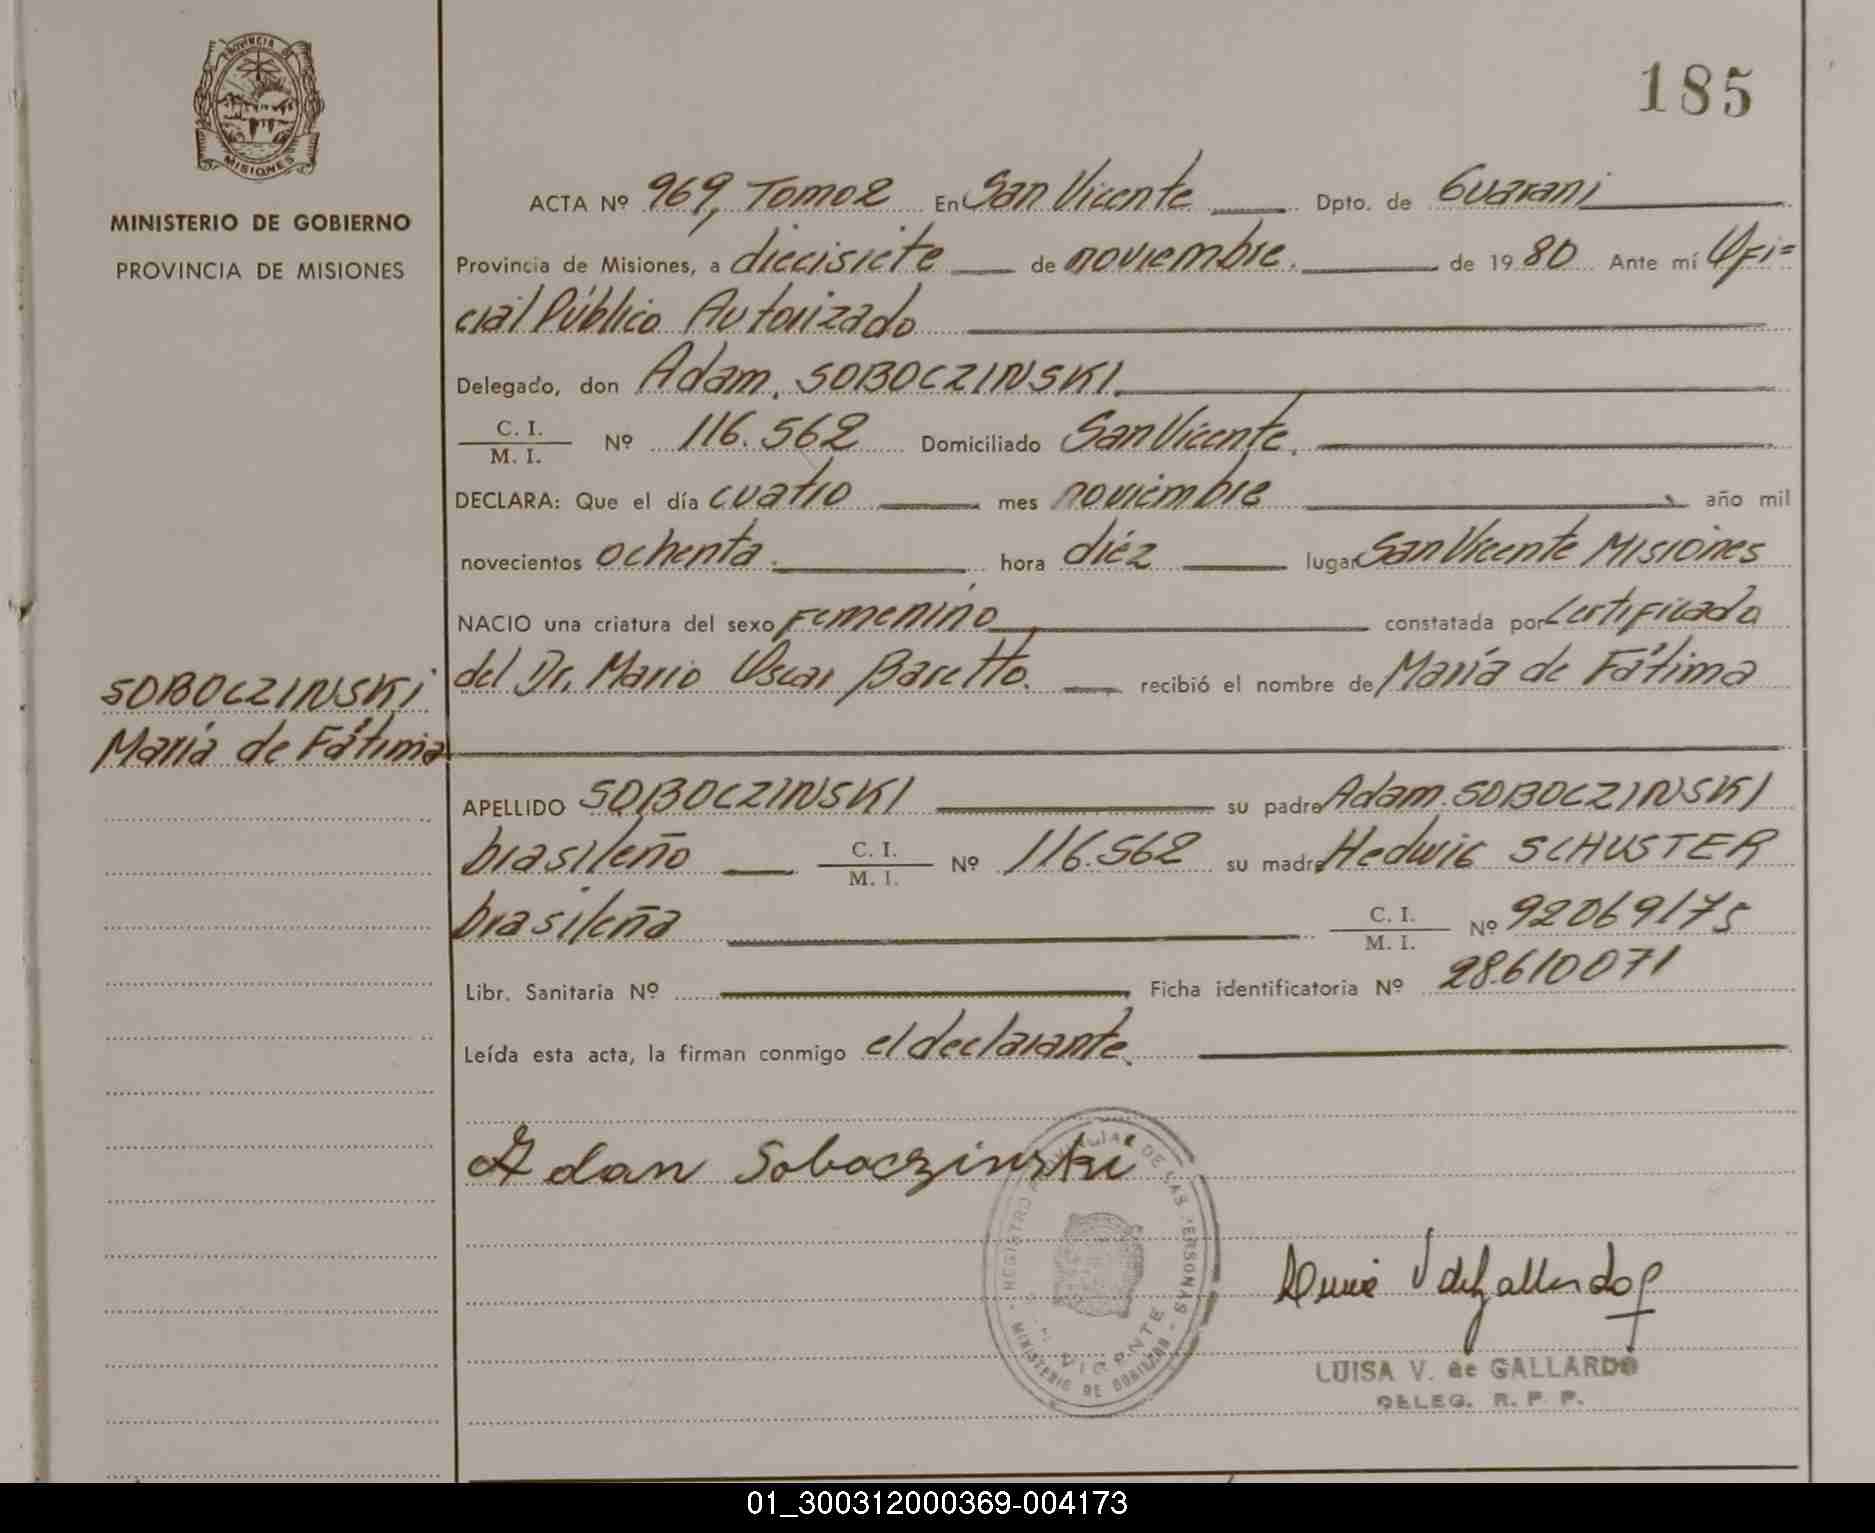 PROVINCIA DE
MISIONES
MINISTERIO DE GOBIERNO
PROVINCIA DE MISIONES
185
ACTA Nº 969, Tomo 2 En San Vicente Dpto. de Guarani
Provincia de Misiones, a diecisiete de noviembre. de 1980 Ante mí Ofi=
cial Público Autorizado
Delegado, don Adam, SOBOCZINSKI
C. I. / M. I. Nº 116.562 Domiciliado San Vicente.
DECLARA: Que el día cuatro mes noviembre año mil
novecientos ochenta. hora diéz lugar San Vicente Misiones
NACIO una criatura del sexo Femenino constatada por Certificado
del Dr. Mario Oscar Baretto. recibió el nombre de María de Fátima
SOBOCZINSKI
María de Fátima
APELLIDO SOBOCZINSKI su padre Adam. SOBOCZINSKI
brasileño C. I. / M. I. Nº 116.562 su madre Hedwig SCHUSTER
brasileña C. I. / M. I. Nº 92069175
Libr. Sanitaria Nº Ficha identificatoria Nº 28.610071
Leída esta acta, la firman conmigo el declarante.
Adan Soboczinski
REGISTRO PROVINCIAL DE LAS PERSONAS
VICENTE
MINISTERIO DE GOBIERNO
V de Gallardo
LUISA V. de GALLARDO
DELEG. R. P. P.
01_300312000369-004173